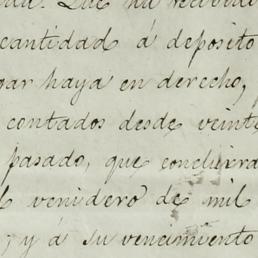 Que ha recibido
cantidad á deposito
haya en derecho,
contados desde veinte
pasado, que concluirá
venidero de mil
y á su vencimiento